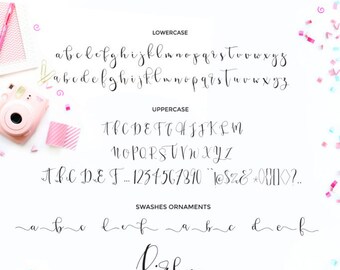 LOWERCASE
a b c d e f g h i j k l m n o p q r s t u v w x y z
a b c d e f g h i j k l m n o p q r s t u v w x y z
UPPERCASE
A B C D E F G H I J K L M
N O P Q R S T U V W X Y Z
A B C D E F ... 1 2 3 4 5 6 7 8 9 0
SWASHES ORNAMENTS
a b c d e f a b c d e f